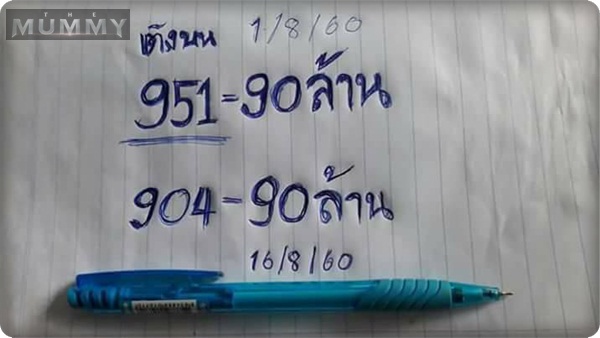 THE
MUMMY
เต็งบน 1/8/60
951=90ล้าน
904=90ล้าน
16/8/60